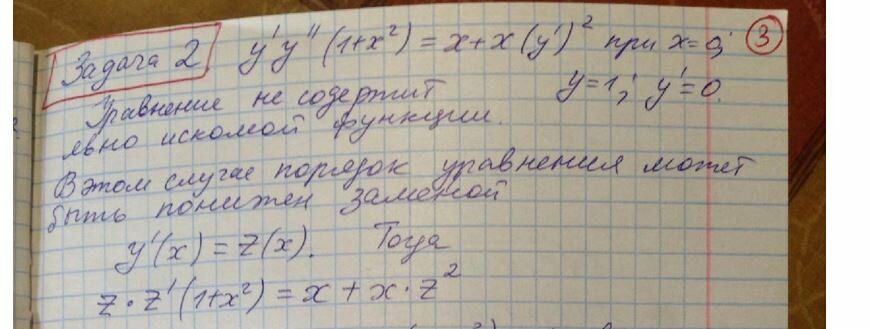 Задача 2 y'y''(1+x²) = x+x(y')² при x=0; ③
y=1; y'=0.
Уравнение не содержит
явно искомой функции.
В этом случае порядок уравнения может
быть понижен заменой
y'(x) = z(x). Тогда
z·z'(1+x²) = x + x·z²